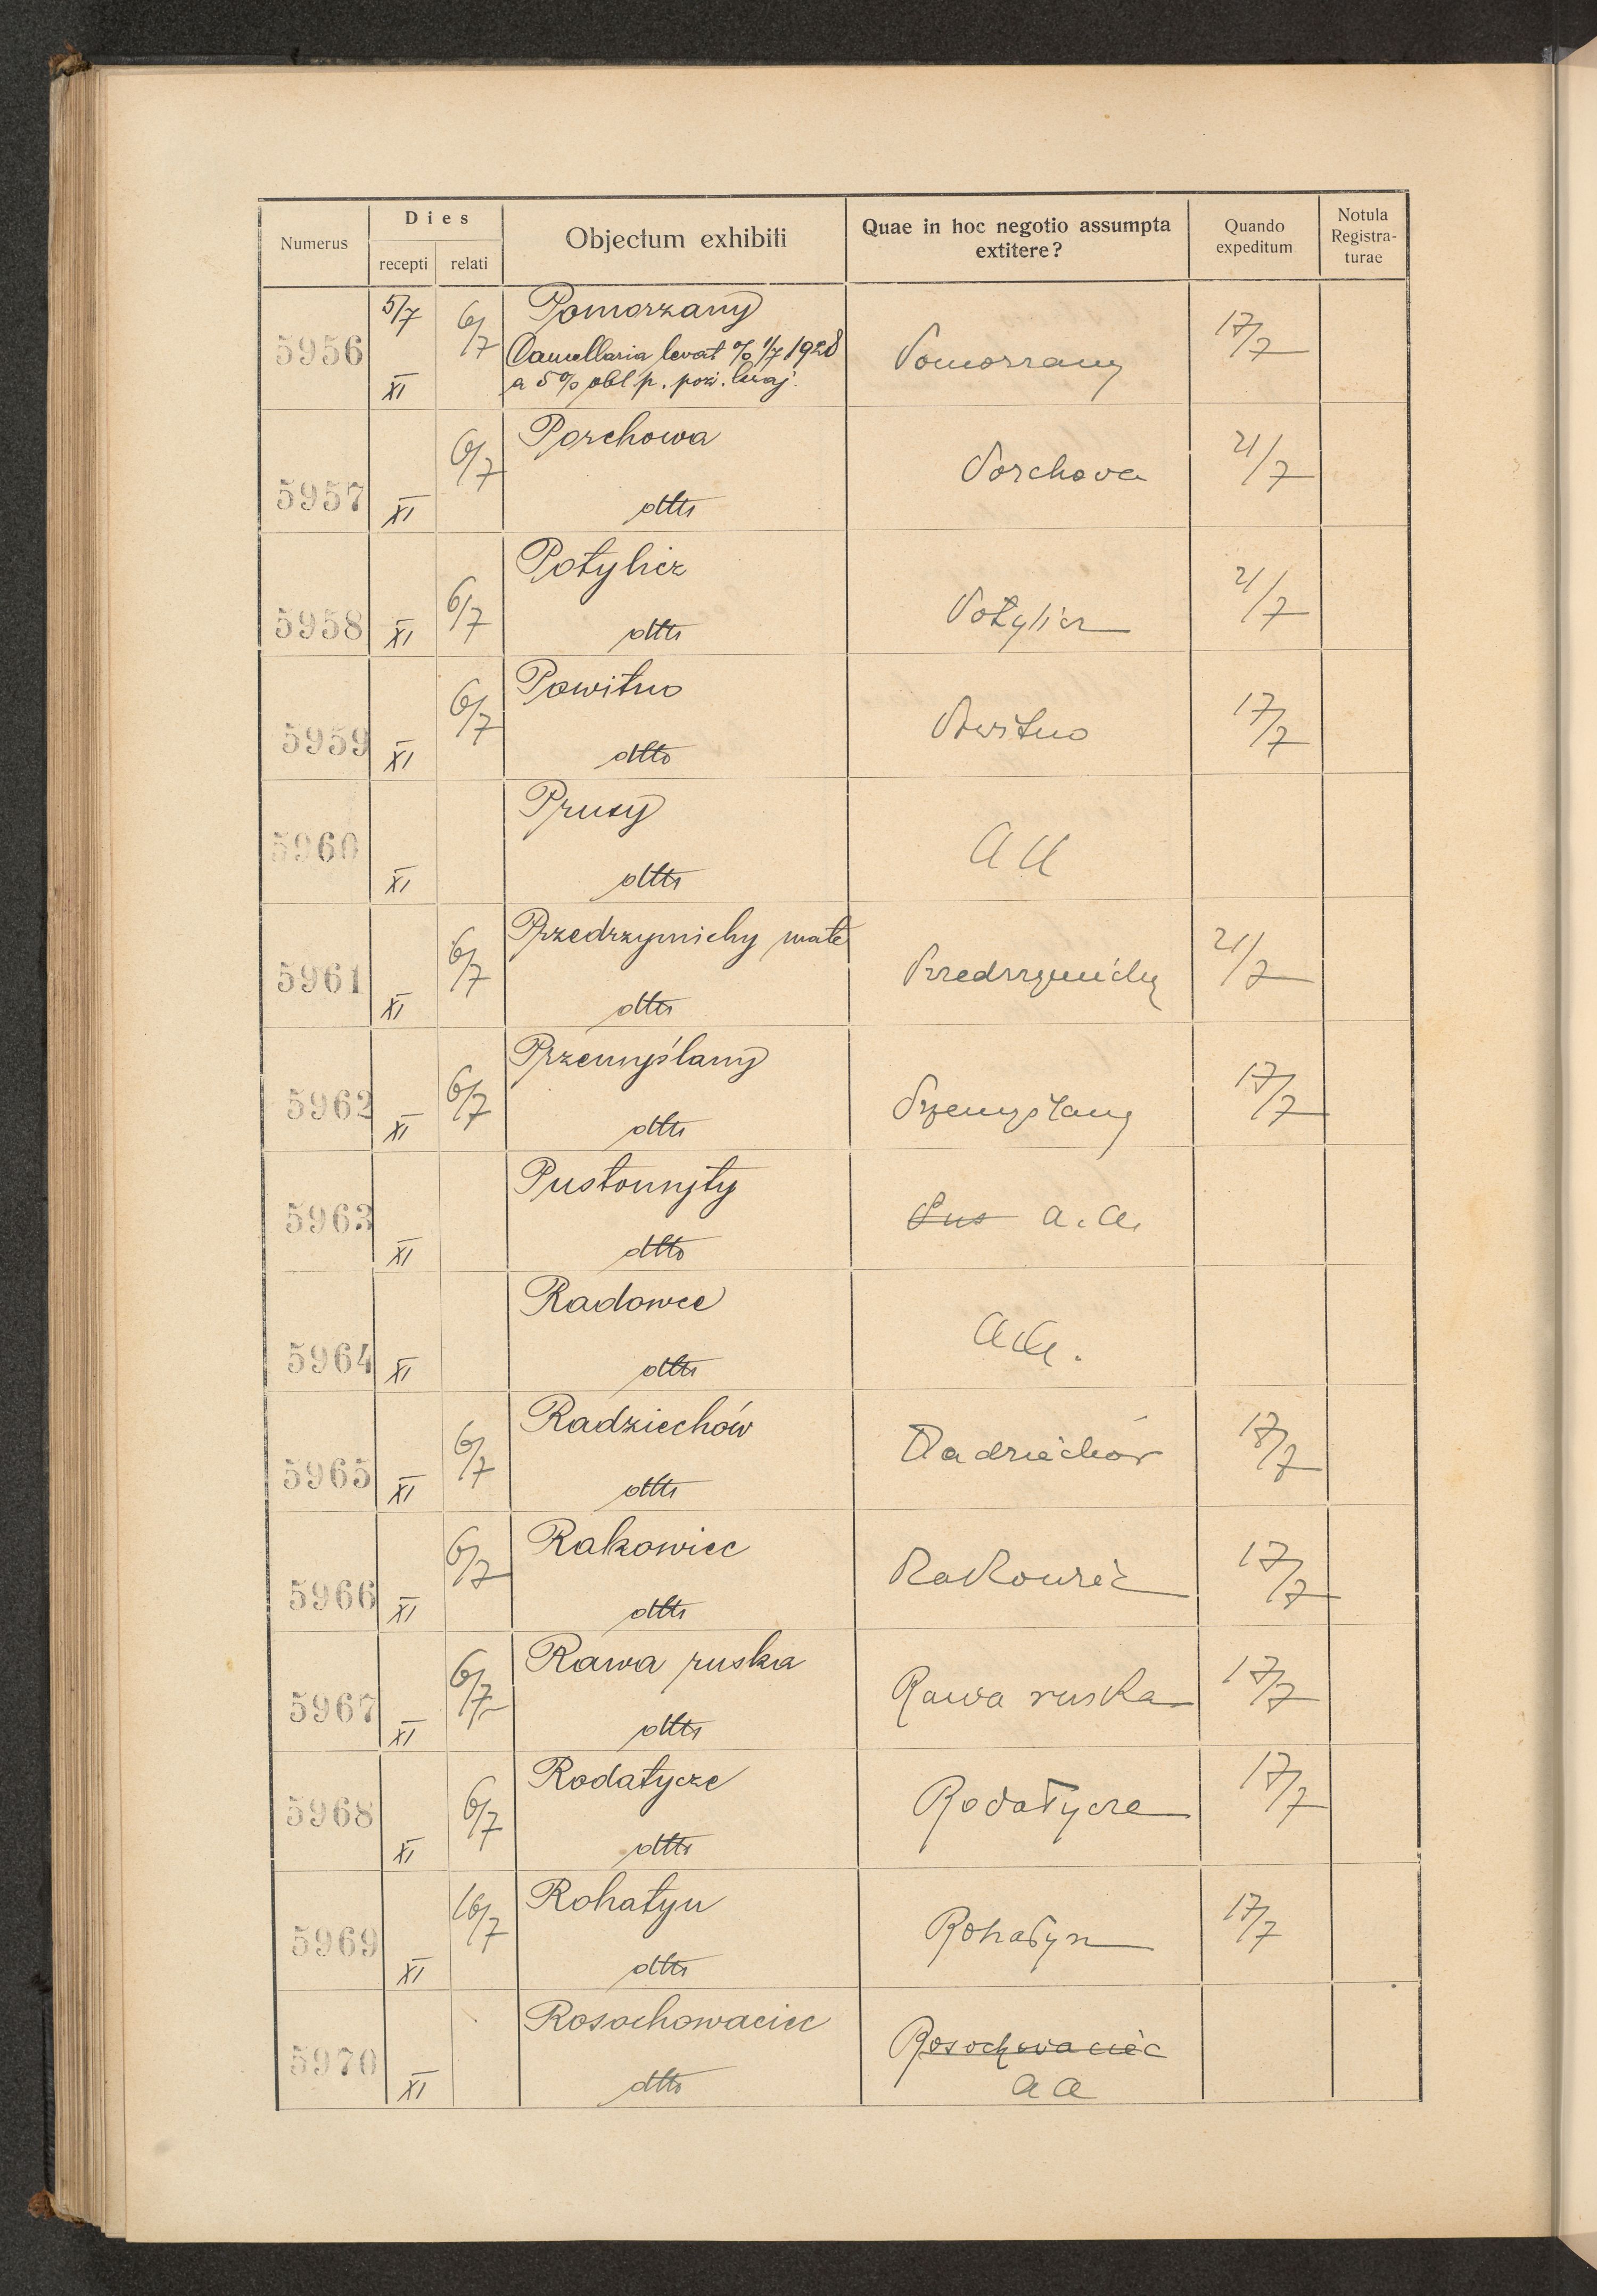 Numerus
Dies
recepti relati
Objectum exhibiti
Quae in hoc negotio assumpta
extitere?
Quando
expeditum
Notula
Registra-
turae
5956 5/7 XI 6/7 Pomorzany
Cancellaria levat % 1/7 1928
a 5% obl p. poż. kraj.
Pomorzany 17/7
5957 XI 6/7 Porchowa
dtto
Porchova 21/7
5958 XI 6/7 Potylicz
dtto
Potylicz 21/7
5959 XI 6/7 Powitno
dtto
Powitno 17/7
5960 XI Prusy
dtto
a a
5961 XI 6/7 Przedrzymichy małe
dtto
Przedrzymichy 21/7
5962 XI 6/7 Przemyślany
dtto
Przemyslany 17/7
5963 XI Pustomyty
dtto
Pus a. a.
5964 XI Radowce
dtto
a a.
5965 XI 6/7 Radziechów
dtto
Radziechów 17/7
5966 XI 6/7 Rakowiec
dtto
Rakowiec 17/7
5967 XI 6/7 Rawa ruska
dtto
Rawa ruska 17/7
5968 XI 6/7 Rodatycze
dtto
Rodatycze 17/7
5969 XI 16/7 Rohatyn
dtto
Rohatyn 17/7
5970 XI Rosochowaciec
dtto
Rosochowaciec
a a